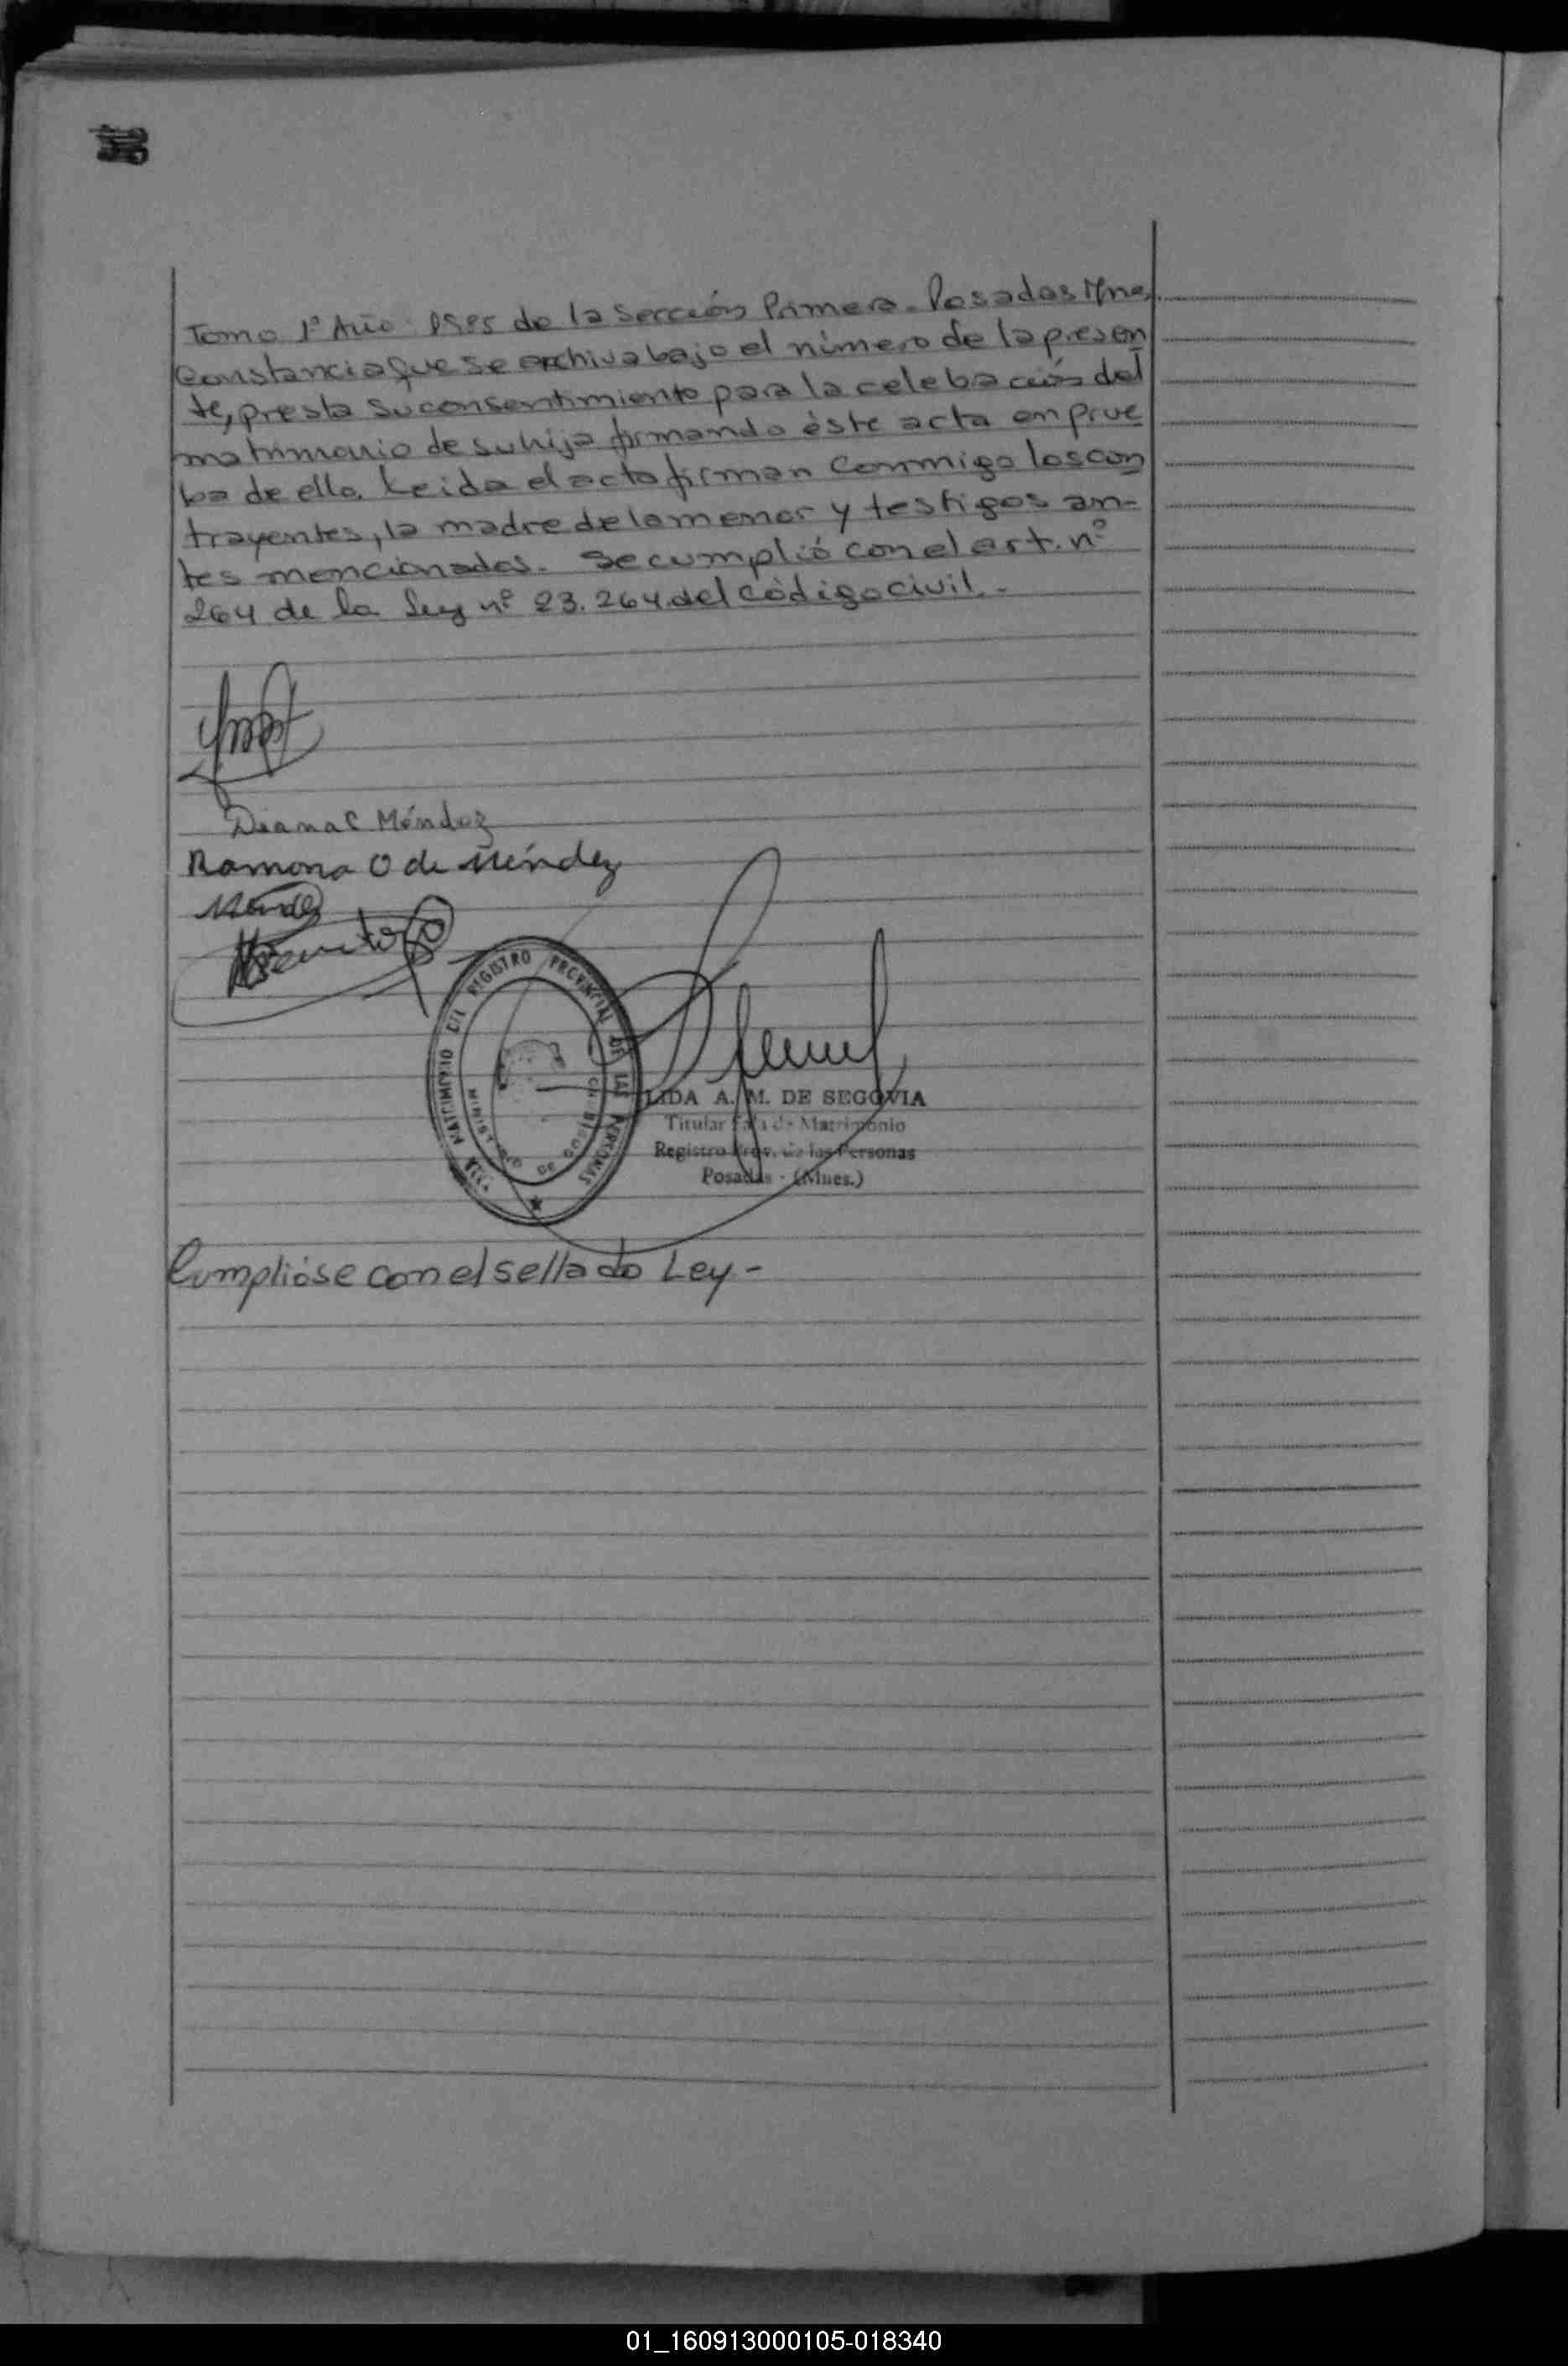 Tomo 1º Año 1985 de la Sección Primera - Posadas Mnes.
Constancia que se archiva bajo el número de la presen
te, presta su consentimiento para la celebación del
matrimonio de su hija firmando èste acta en prue
ba de ello. Leida el acta firman conmigo los con
trayentes, la madre de la menor y testigos an-
tes mencionados. Se cumplió con el art. nº
264 de la Ley nº 23.264 del Còdigo civil.-
Diana C Méndez
Ramona O de Méndez
Mendez
REGISTRO PROVINCIAL DE LAS PERSONAS
MATRIMONIO
MINISTERIO DE GOBIERNO
LIDA A. M. DE SEGOVIA
Titular Sala de Matrimonio
Registro Prov. de las Personas
Posadas - (Mnes.)
Cumplióse con el sellado Ley -
01_160913000105-018340